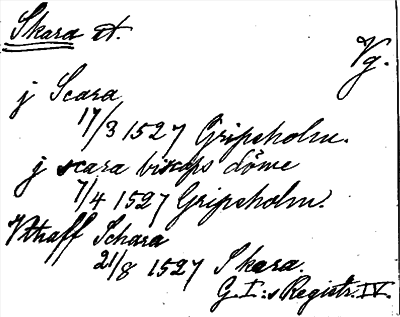 Skara st.
Vg.
j Scara
17/3 1527 Gripsholm.
j scara biskops döme
7/4 1527 Gripsholm.
Vthaff Schara
21/8 1527 Skara.
G. I:s Registr. IV.